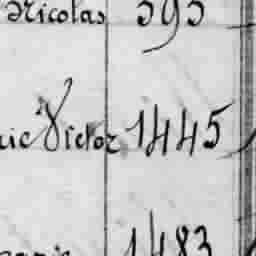 Nicolas 595
ric Victor 1445
1483